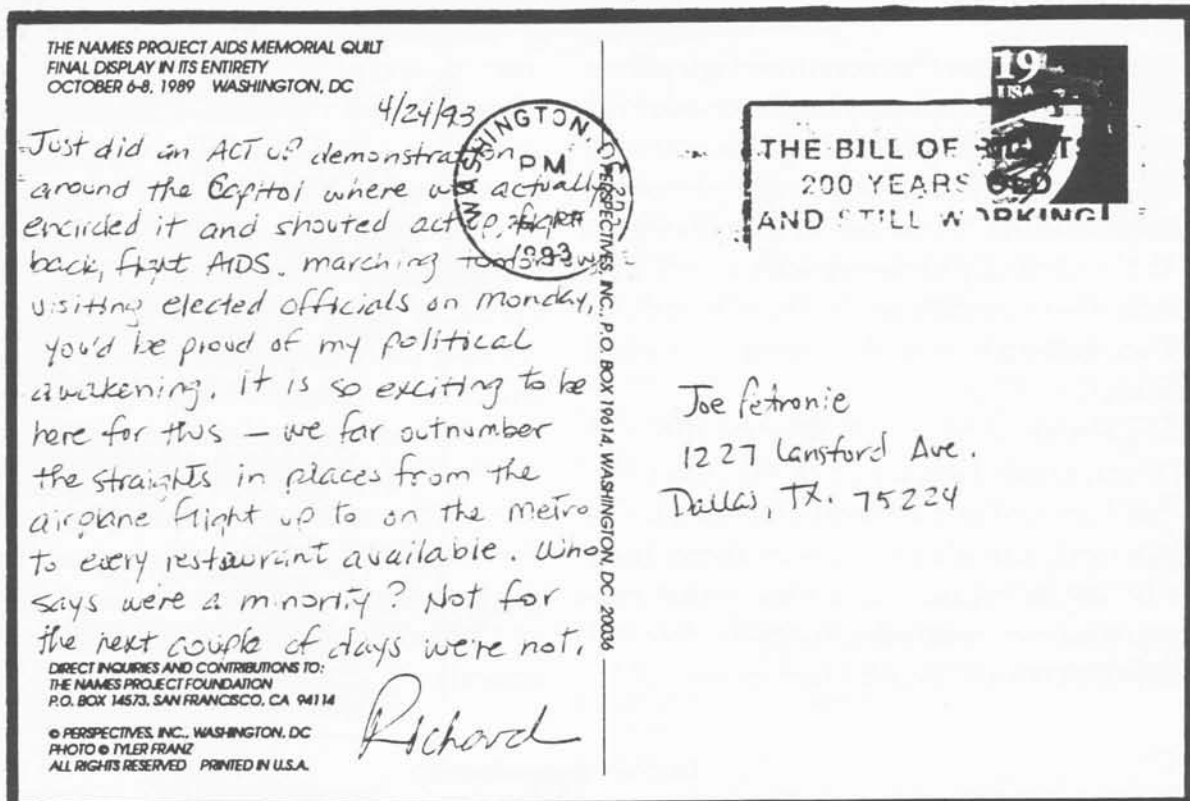 THE NAMES PROJECT AIDS MEMORIAL QUILT
FINAL DISPLAY IN ITS ENTIRETY
OCTOBER 6-8, 1989 WASHINGTON, DC
4/24/93
Just did an ACT UP demonstration
around the Capitol where we actually
encircled it and shouted act up, fight
back, fight AIDS. marching tomorrow,
visiting elected officials on monday,
you'd be proud of my political
awakening. it is so exciting to be
here for this — we far outnumber
the straights in places from the
airplane flight up to on the metro
to every restaurant available. Who
says were a minority? Not for
the next couple of days were not.
Richard
DIRECT INQUIRIES AND CONTRIBUTIONS TO:
THE NAMES PROJECT FOUNDATION
P.O. BOX 14573, SAN FRANCISCO, CA 94114
© PERSPECTIVES, INC., WASHINGTON, DC
PHOTO © TYLER FRANZ
ALL RIGHTS RESERVED PRINTED IN U.S.A.
PERSPECTIVES, INC. P.O. BOX 19614, WASHINGTON, DC 20036
WASHINGTON, DC
PM
1993
19
USA
THE BILL OF RIGHTS
200 YEARS OLD
AND STILL WORKING!
Joe Petronie
1227 Lansford Ave.
Dallas TX. 75224